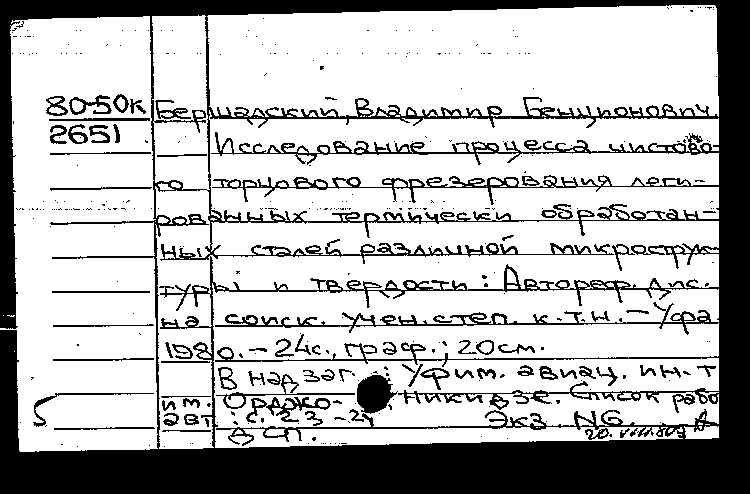 80-50к Бершадский, Владимир Бенционович.
2651
Исследование процесса чистово-
го торцового фрезерования леги-
рованных термически обработан-
ных сталей различной микрострук-
туры и твердости: Автореф. дис.
на соиск. учен. степ. к.т.н. - Уфа
1980. - 24с., граф.; 20см.
В надзаг.: Уфим. авиац. ин-т
им. Орджо- никидзе. Список работ
5 авт.: с. 23-24 Экз. №6.
ДСП. 20.VIII.80г